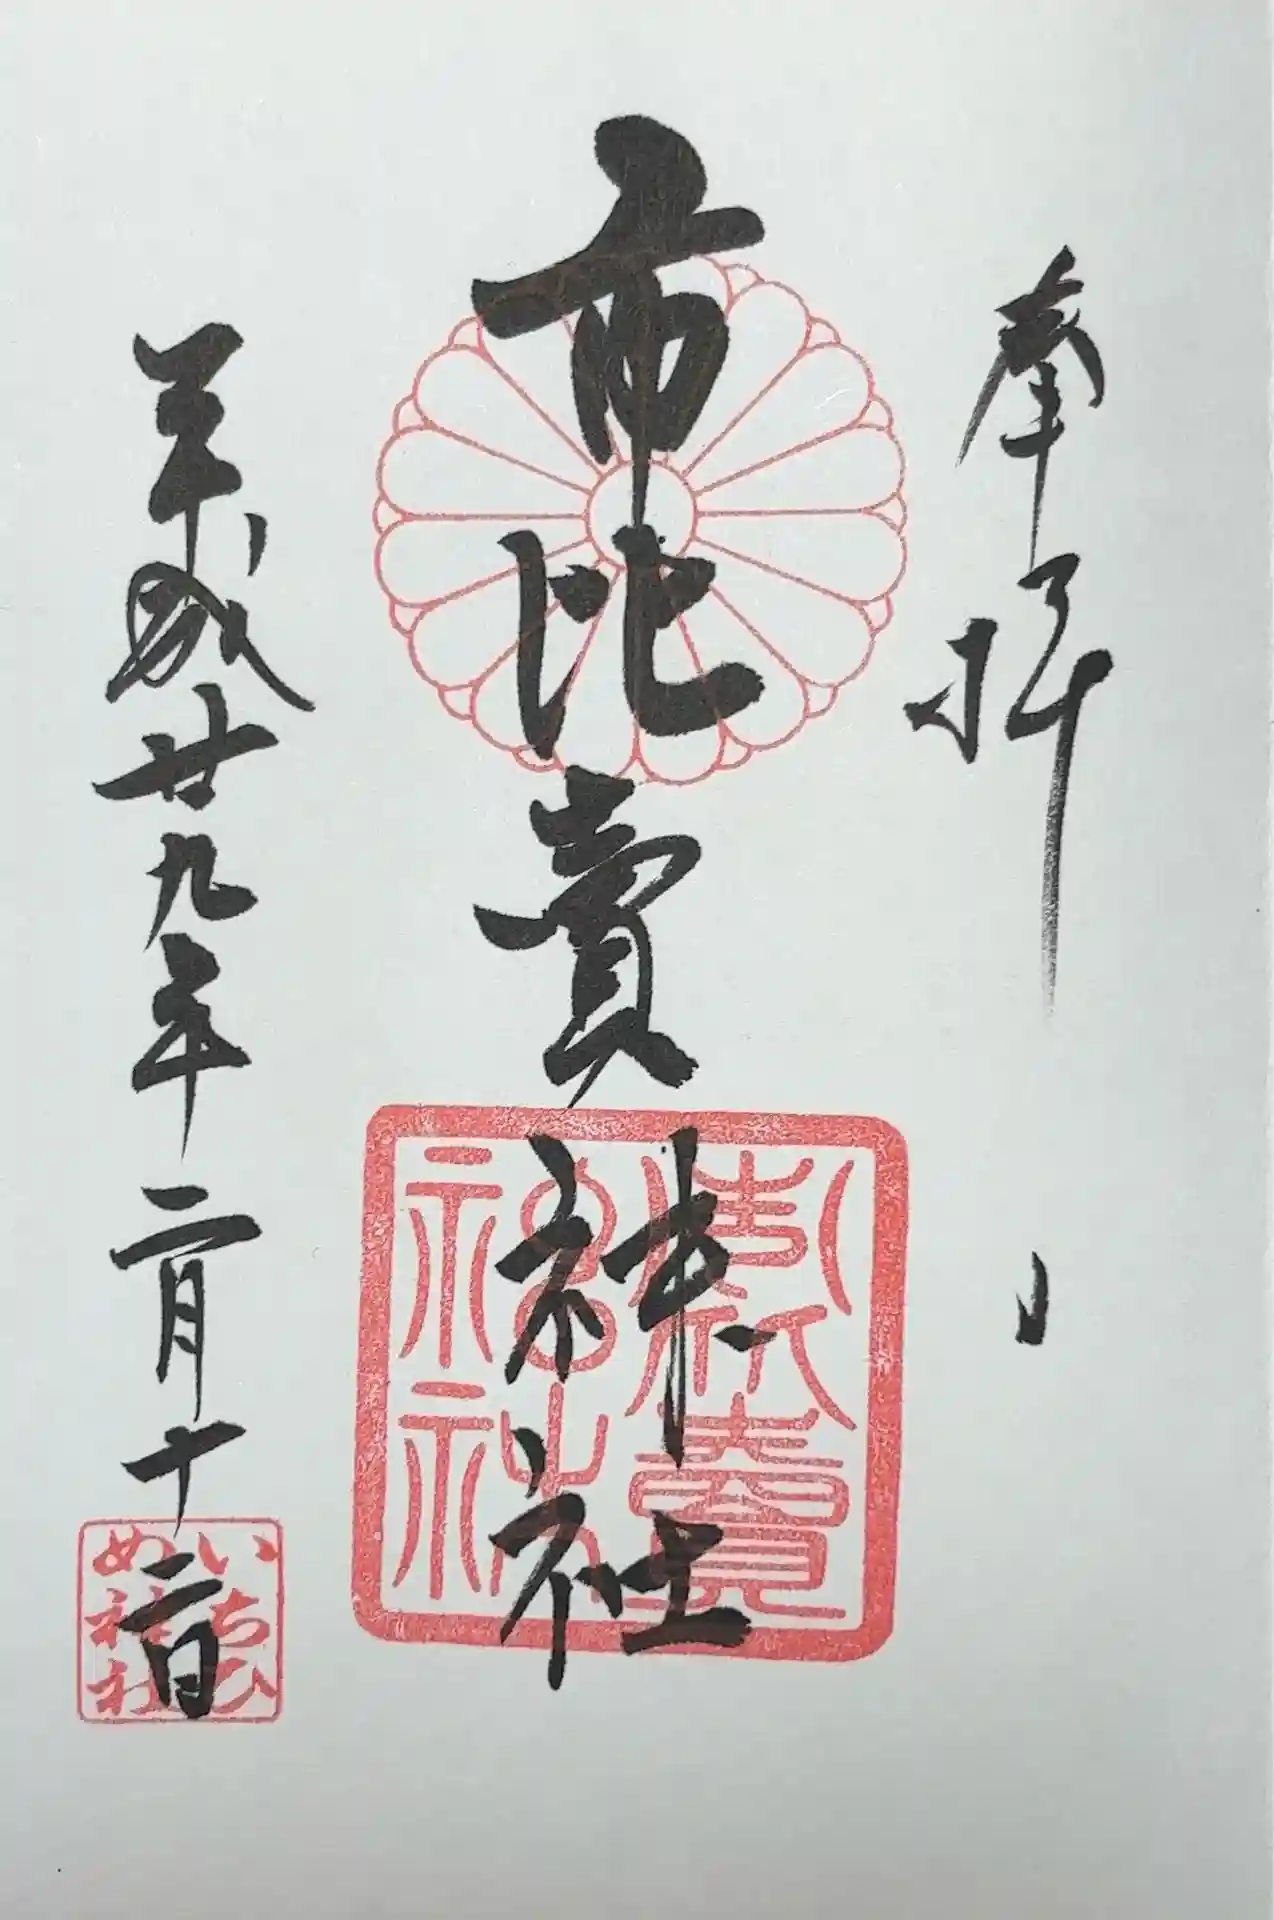 奉拝
市比賣神社
平成廿九年二月十二日
市比賣
神社
いちひ
め神社